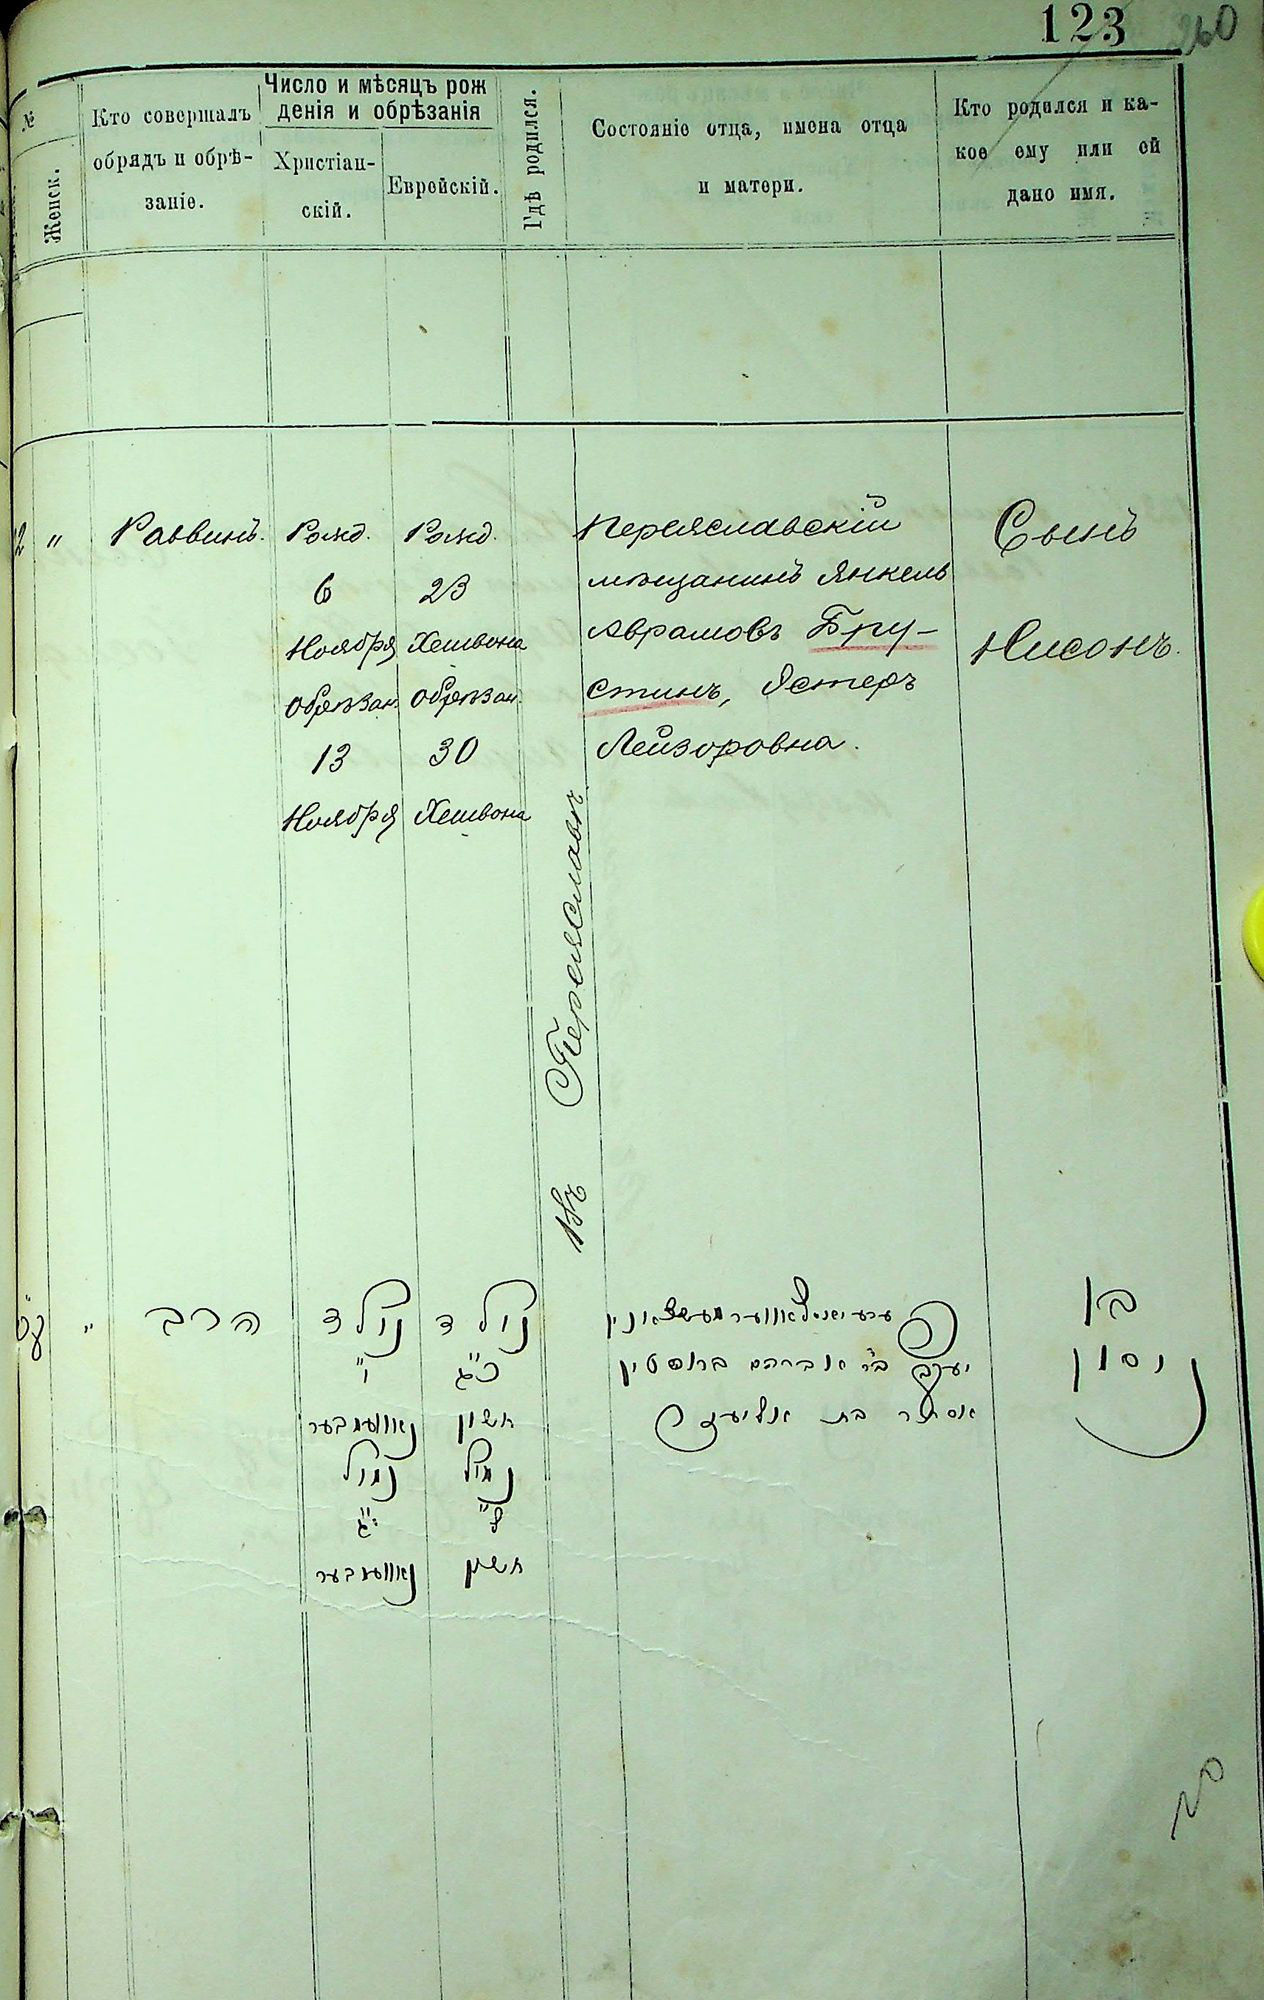 123
260
№
Женск.
Кто совершалъ
обрядъ и обрѣ-
заніе.
Число и мѣсяцъ рож
денія и обрѣзанія
Христіан-
скій.
Еврейскій.
Гдѣ родился.
Состояніе отца, имена отца
и матери.
Кто родился и ка-
кое ему или ей
дано имя.
2 "
Раввинъ.
Рожд.
6
Ноября
Обрѣзан.
13
Ноября
Рожд.
23
Хешвона
Обрѣзан.
30
Хешвона
Въ Переяславѣ
Переяславскій
мѣщанинъ Янкель
Аврамовъ Бру-
стинъ, Эстеръ
Лейзоровна.
Сынъ
Нисонъ.
"
הרב
נולד
ו"
נאוועמבער
נמול
י"ג
נאוועמבער
נולד
כ"ג
חשון
נמול
ל"
חשון
יעקב ב"ר אברהם ברוסטין
אסתר בת אליעזר
בן
ניסון